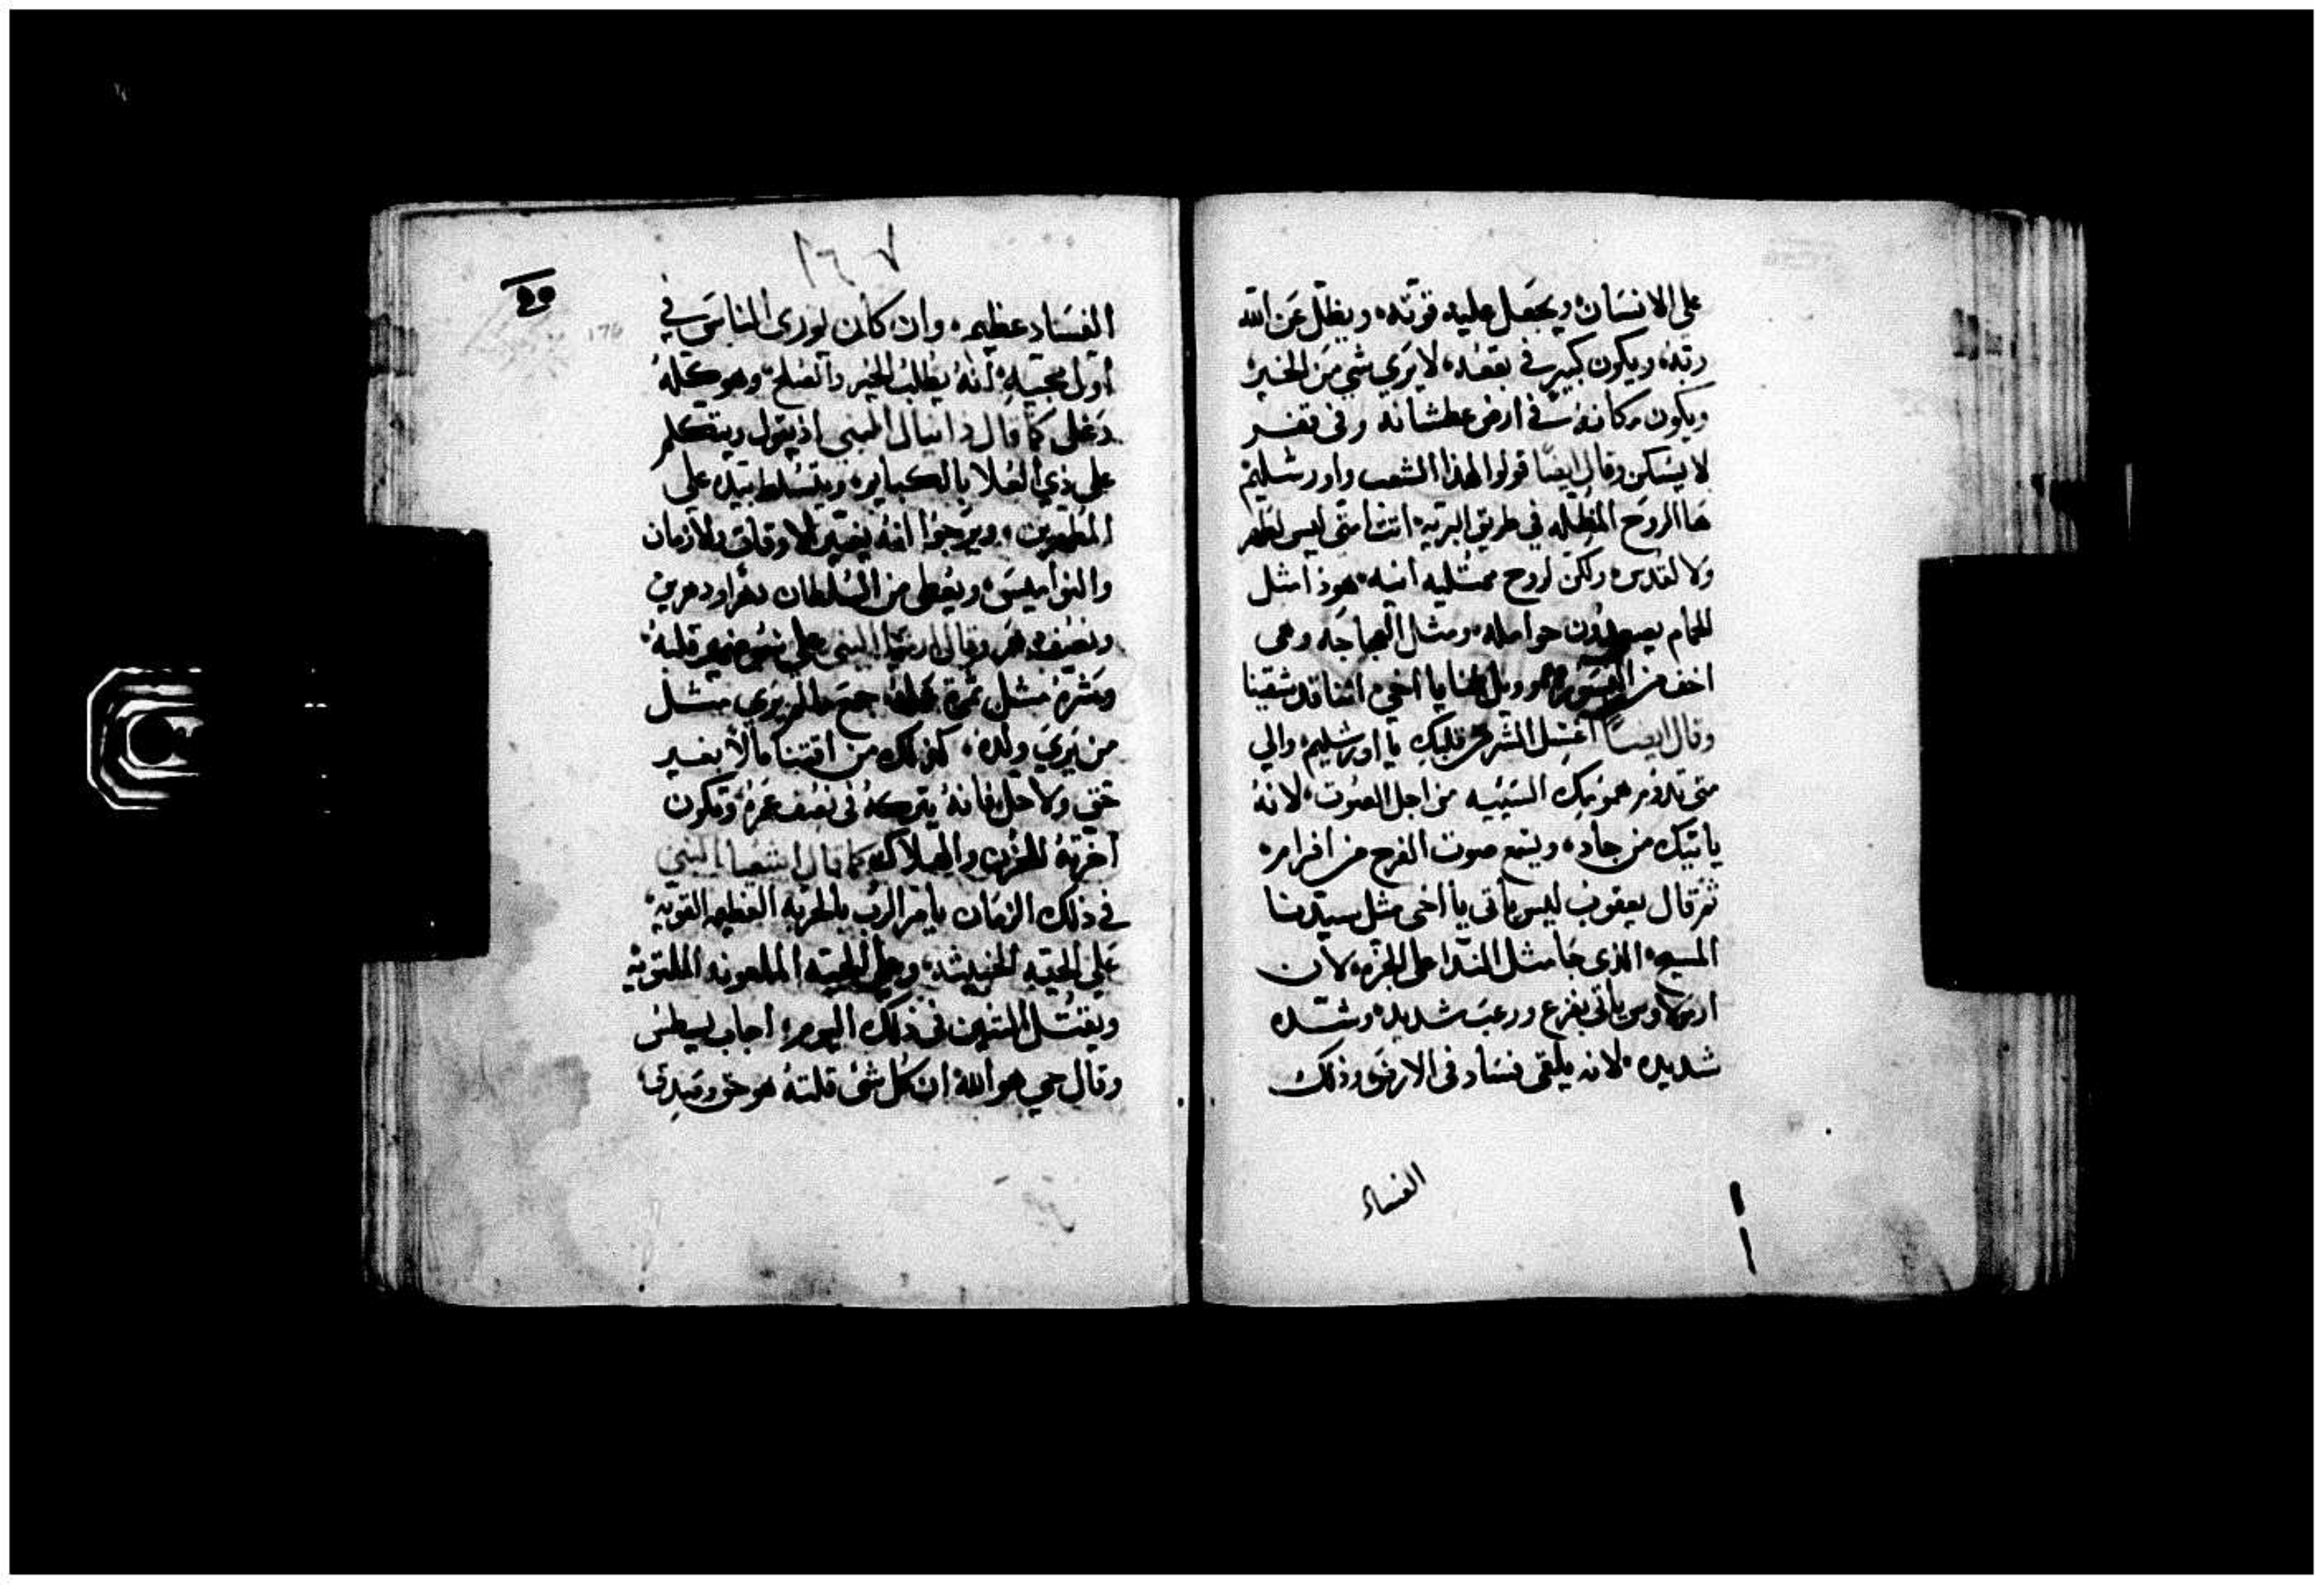 على الانسان ويجعل عليه قوته ويظل عن الله
ربه ويكون كبير في بقعه لا يرى شي من الخير
ويكون مكانه في ارض عطشانه وفى قفر
لا يسكن وقال ايضا قولوا لهذا الشعب واورشليم
هاالروح المظله في طريق البريه
ولا لقدس ولكن لروح ممتليه اتيه هوذا مثل
حوامله ومثل العجاجه وهى
اخف من النسور وويل لنا يا اخي اننا قد شقينا
وقال ايضاً اغسل الشر من قلبك يا اورشليم والي
متى تدوم همومك السيئيه من اجل الصوت لانه
ياتيك من جاد ويسمع صوت الفرح من افرام
ثم قال يعقوب ليس ياتى يا اخى مثل سيدنا
المسيح الذى جا مثل الندا على الجزه لان
ارمولاوس ياتى بفزع ورعب شديد وشده
شديده لانه يلقى فساد فى الارض وذلك
الفساد
١٦٧
176
الفساد عظيم وان كان يورى الناس في
اول مجيه انه يطلب الخير والصلح وهو كله
دغلى كما قال دانيال النبي اذ يقول ويتكلم
على ذي العلا بالكباير ويتسلط بيده على
المطهرين ويرجوا انه يغير الاوقات والازمان
والنواميس ويعطى من السلطان دهرا ودهرين
ونصف دهر وقال ارميا النبى على قلبه
ومثره مثل جمع مالم يرى مثل
من يرى ولده كذلك من اقتنا مالا بغير
حق ولا حل فانه يتركه فى نصف عمره وتكون
اخرته للحزن والهلاك كما قال اشعيا النبي
في ذلك الزمان يامر الرب بالحربه العظيمه القويه
على الحيه الخبيثه وعلى الحيه الملعونه الملتويه
ويقتل التنين فى ذلك اليوم اجاب يسطس
وقال حي هو الله ان كل شى قلته هو حق وصدق